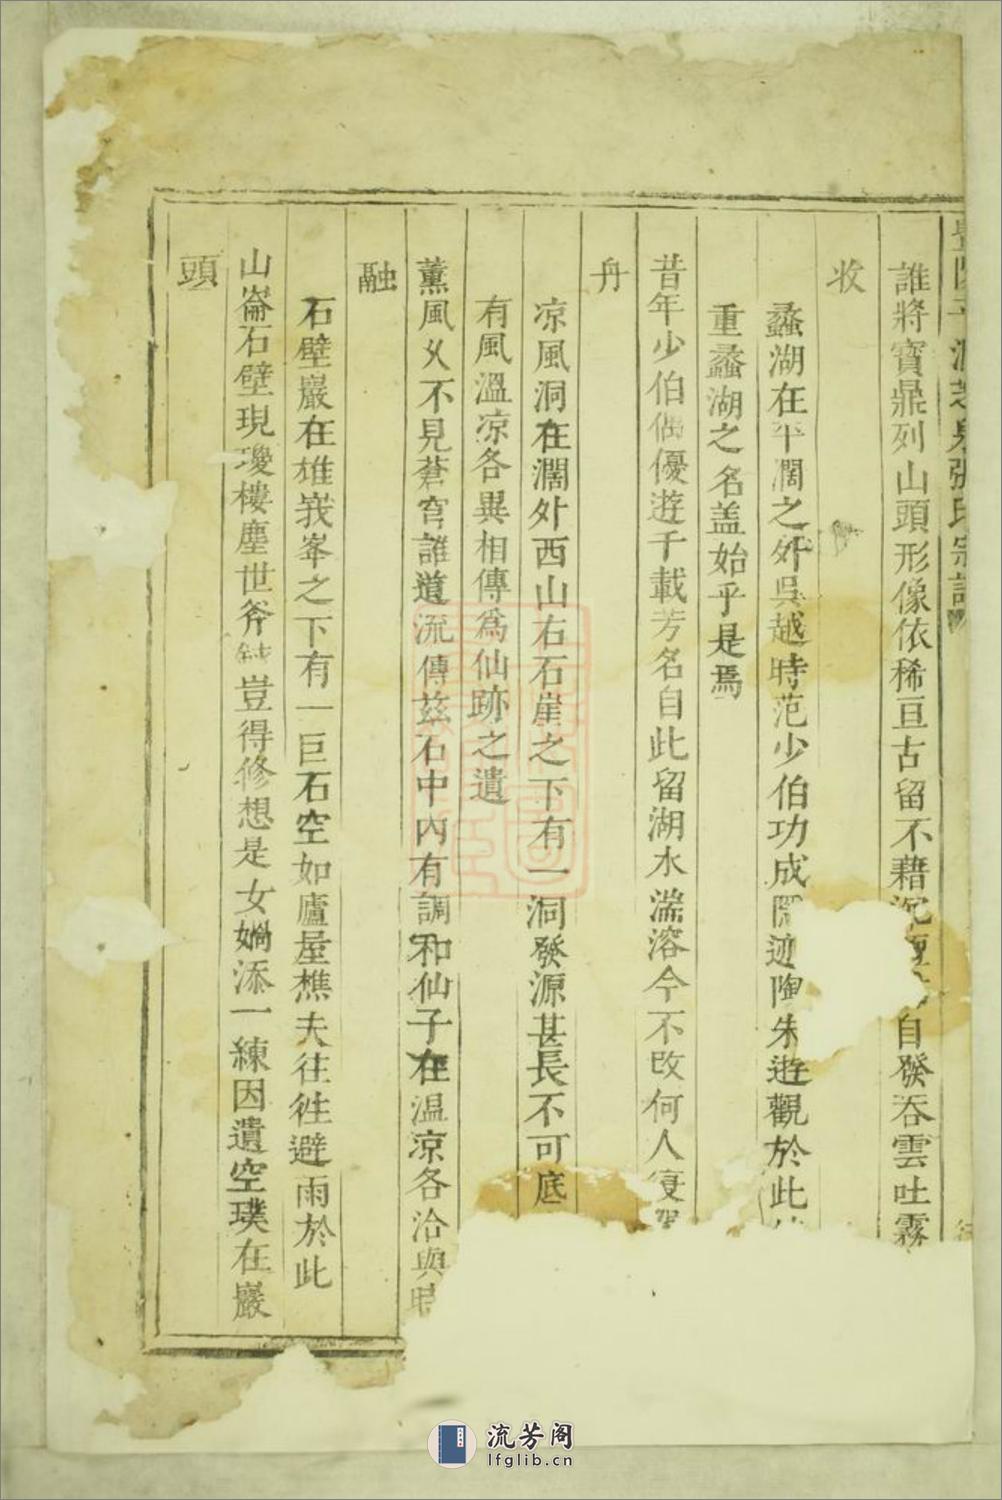 張氏宗譜
誰將寶鼎列山頭形像依稀亘古留不藉沉自發吞雲吐霧
收
蠡湖在平濶之外吳越時范少伯功成迹陶朱遊觀於此
重蠡湖之名盖始乎是焉
昔年少伯偶優遊千載芳名自此留湖水溶今不改何人
舟
凉風洞在濶外西山右石崖之下有一洞發源甚長不可底
有風溫凉各異相傳爲仙跡之遺
薰風久不見蒼穹誰道流傳兹石中內有調和仙子在溫凉各洽與時
融
石壁巖在雄峩峯之下有一巨石空如廬屋樵夫往徃避雨於此
山崙石壁現瓊樓塵世斧豈得修想是女媧添一練因遺空璞在巖
頭
流芳阁
lfglib.cn